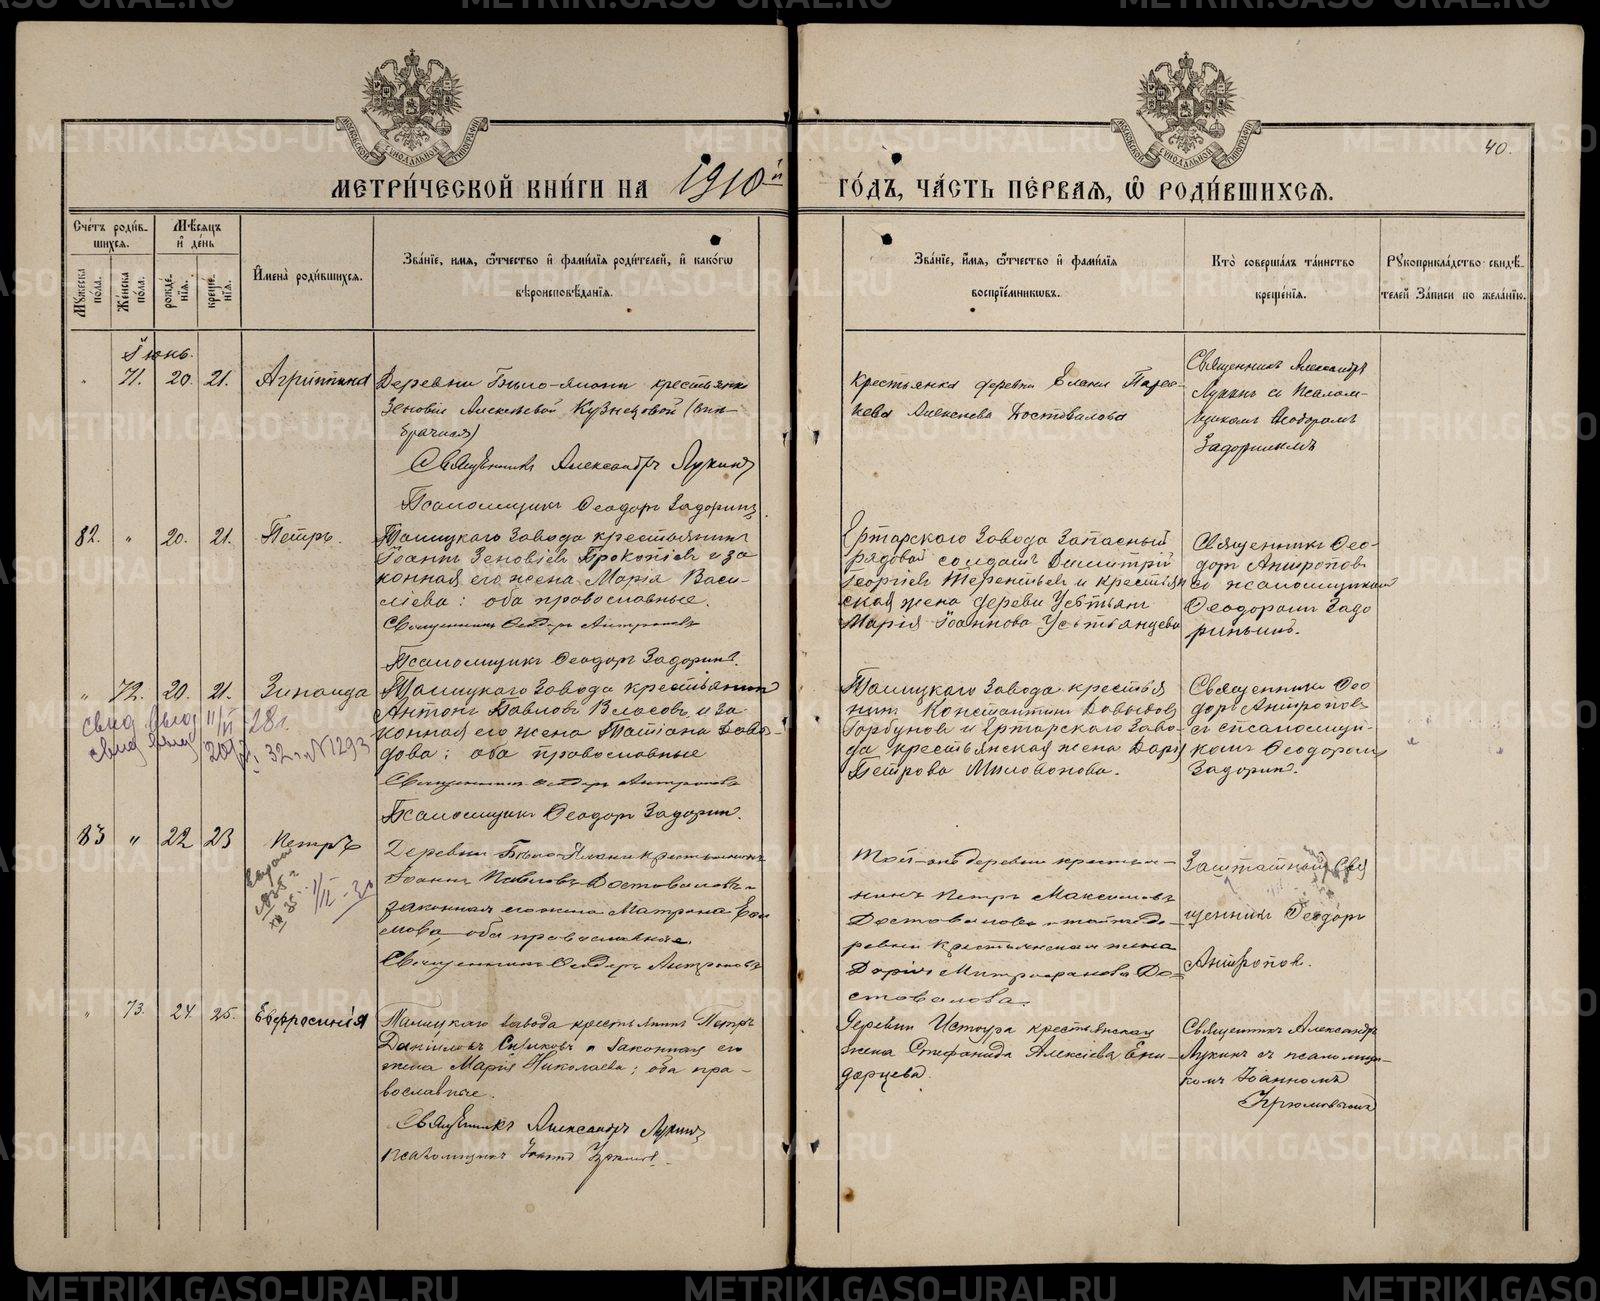 МЕТРИ́ЧЕСКОЙ КНИ́ГИ НА 1910й
ГО́ДЪ, ЧА́СТЬ ПЕ́РВАЯ, Ѿ РОДИ́ВШИХСѦ.
40.
Сче́тъ роди́в-
шихся.
Мѣсяцъ
и҆ де́нь
Му́жеска
по́ла.
Же́нска
по́ла.
рожде́-
нїя.
креще́-
нїя.
И҆мена̀ роди́вшихся.
Зва́нїе, имя, ѻ҆́тчество и҆ фами́лїя роди́телей, и҆ како́гѡ
вѣроисповѣ́данїя.
Зва́нїе, и҆́мя, ѻ҆́тчество и҆ фами́лїя
воспрїе́мникѡвъ.
Кто̀ соверша́лъ та́инство
креще́нїя.
Рꙋкоприкла́дство свидѣ́-
телей За́писи по жела́нїю.
Іюнь.
" 71. 20. 21. Агриппина
Деревни Было-Елани крестьянки
Зеновіи Алексѣевой Кузнецовой (вне-
брачная)
Священникъ Александръ Лукинъ
Псаломщикъ Ѳеодоръ Задоринъ.
крестьянка деревни Елани Парас-
кева Алексѣева Достовалова
Священникъ Александръ
Лукинъ съ Псалом-
щикомъ Ѳеодоромъ
Задоринымъ
82. " 20. 21. Петръ.
Талицкаго Завода крестьянинъ
Іоаннъ Зеновіевъ Прокопіевъ и за
конная его жена Марія Васи-
ліева: оба православные.
Священникъ Ѳеодоръ Антроповъ
Псаломщикъ Ѳеодоръ Задоринъ.
Ертарского Завода Запасный
рядовой солдатъ Димитрій
Георгіевъ Терентьевъ и крестьян
ская жена дереви Устьянъ
Марія Іоаннова Устьянцева
Священникъ Ѳео-
доръ Антроповъ
съ псаломщикомъ
Ѳеодоромъ Задо
ринымъ.
" 72. 20. 21. Зинаида
свид выд 11/VI 28г.
свид выд 32г. №1293
Талицкаго Завода крестьянинъ
Антонъ Павловъ Власовъ и за
конная его жена Татіана Давы-
дова: оба православные
Священникъ Ѳеодоръ Антроповъ
Псаломщикъ Ѳеодоръ Задоринъ.
Талицкаго Завода крестья
нинъ Константинъ Давыдовъ
Горбуновъ и Ертарского Заво-
да крестьянская жена Дарія
Петрова Милованова.
Священникъ Ѳео
доръ Антроповъ
съ псаломщи-
комъ Ѳеодоромъ
Задорин.
83 " 22 23 Петръ
Деревни Было-Елани крестьянинъ
Іоаннъ Павловъ Достоваловъ и
законная его жена Матрона
оба православные.
Священникъ Ѳеодоръ Антроповъ
Той-же деревни крестья-
нинъ Петръ Максимовъ
Достоваловъ и той же де-
ревни крестьянская жена
Дарія Митрофанова До-
стовалова.
Заштатный Свя
щенникъ Ѳеодоръ
Антропов.
" 73. 24. 25. Евфросинія
Талицкаго завода крестьянинъ Петръ
Даниловъ и законная его
жена Марія Николаева; оба пра-
вославные.
Священникъ Александръ Лукинъ
псаломщикъ Іоаннъ
Деревни Истоура крестьянская
жена Стефанида Алексіева Ени-
дорцева.
Священникъ Александръ
Лукинъ съ псаломщи-
комъ Іоанномъ
METRIKI.GASO-URAL.RU